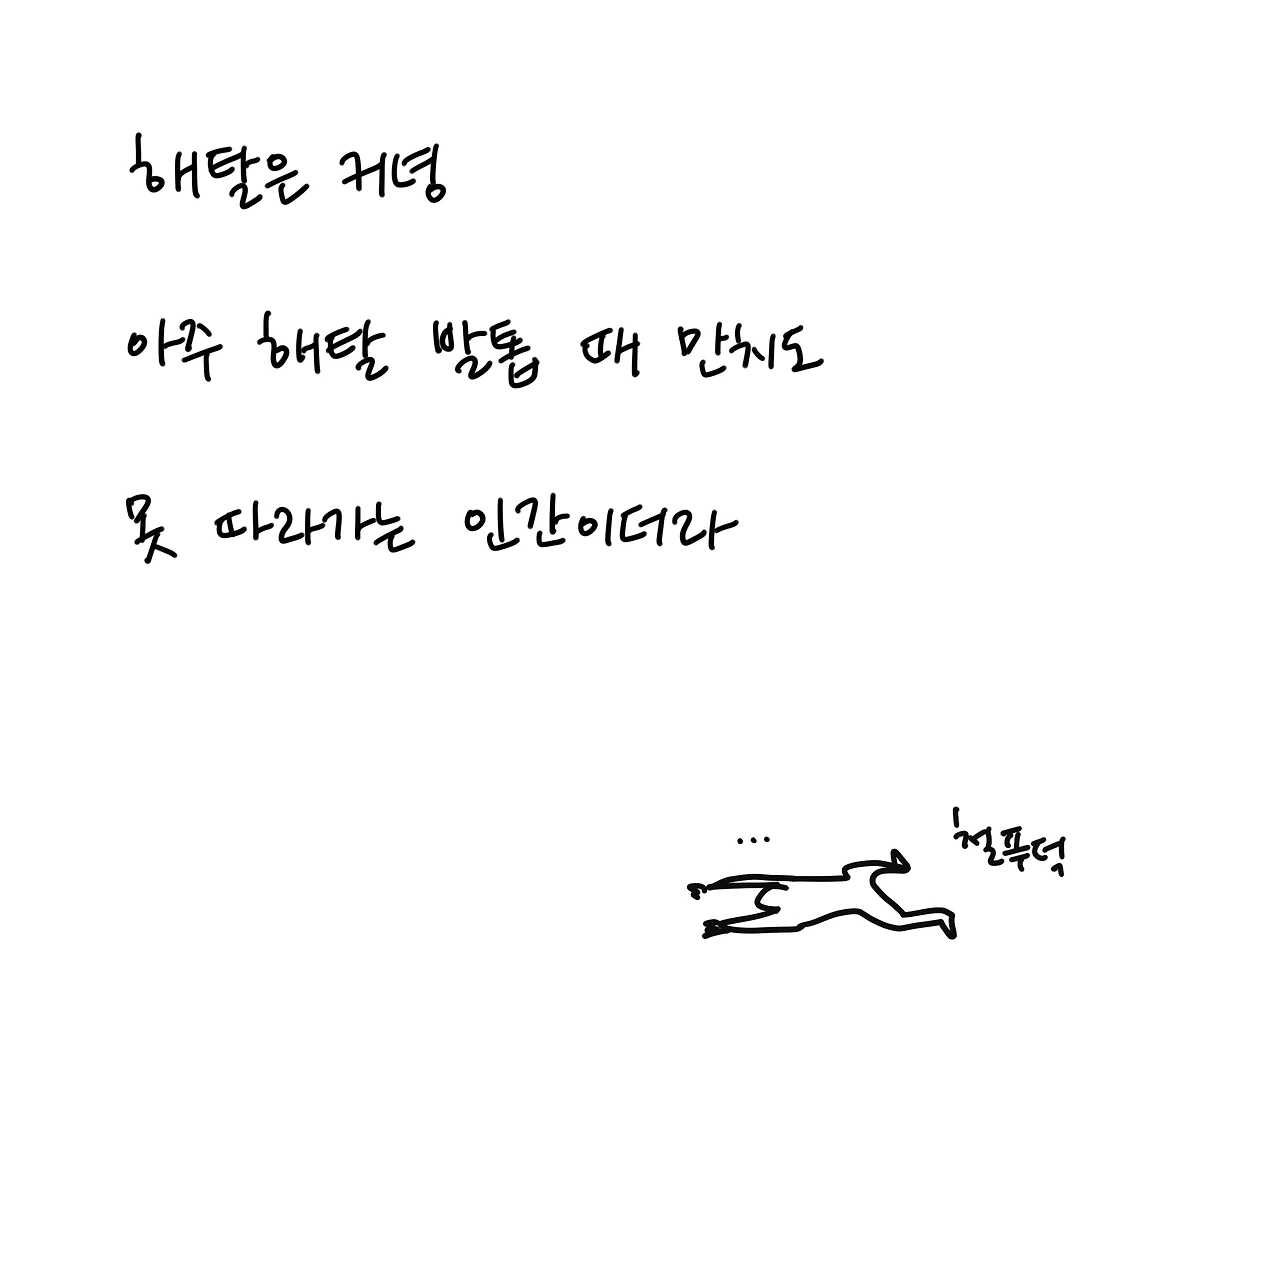 해탈은 커녕
아주 해탈 발톱 때 만치도
못 따라가는 인간이더라
...
철푸덕